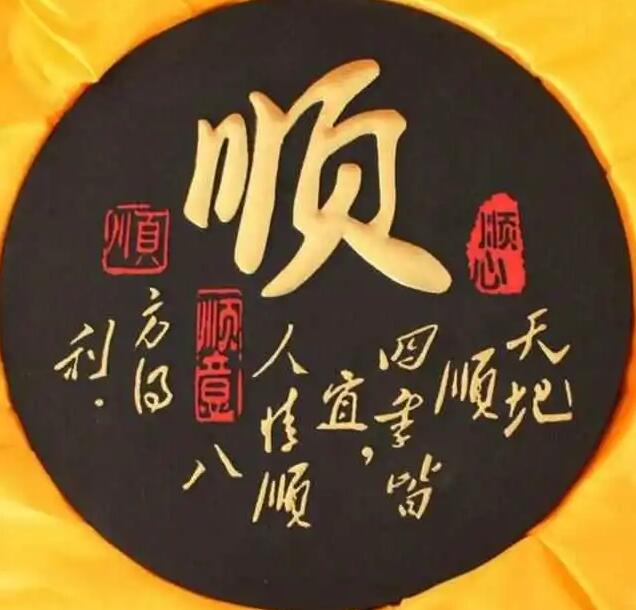 顺
順
顺心
顺意
天地
順
四季皆
宜，
人情顺
八
方得
利.